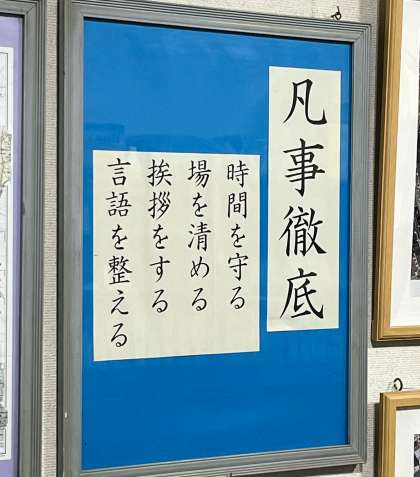 凡事徹底
時間を守る
場を清める
挨拶をする
言語を整える